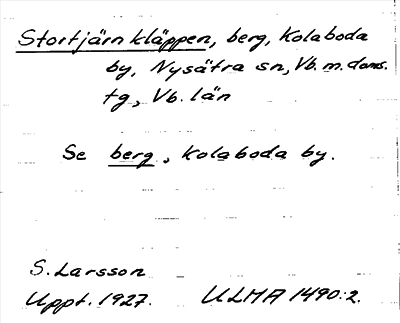 Stortjärnkläppen, berg, Kolaboda
by, Nysätra sn, Vb. m. doms.
tg, Vb. län
Se berg, Kolaboda by.
S. Larsson
Uppt. 1927. ULMA 1490:2.